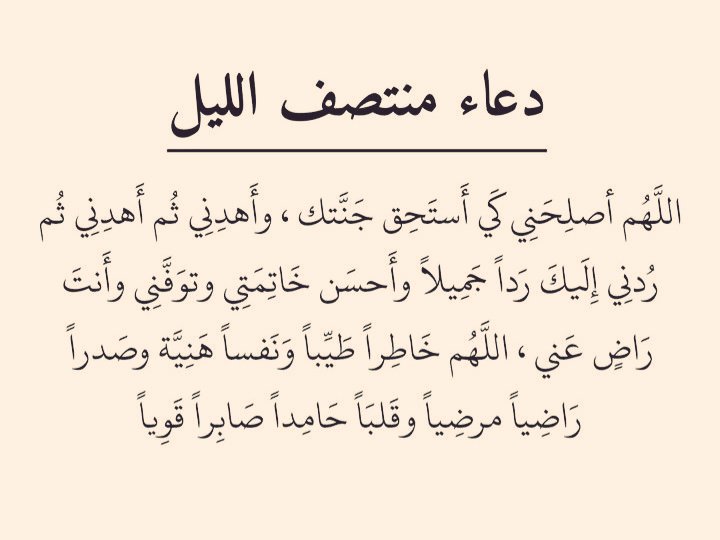 دعاء منتصف الليل
اللَّهُم أصلِحَنِي كَي أَستَحِق جَنَّتك ، وأَهدِنِي ثُم أَهدِنِي ثُم
رُدنِي إِلَيكَ رَداً جَمِيلاً وأَحسَن خَاتِمَتِي وتوَفَّنِي وأَنتَ
رَاضٍ عَني ، اللَّهُم خَاطِراً طَيِّباً وَنَفساً هَنِيَّة وصَدراً
رَاضِياً مرضِياً وقَلبَاً حَامِداً صَابِراً قَوِياً